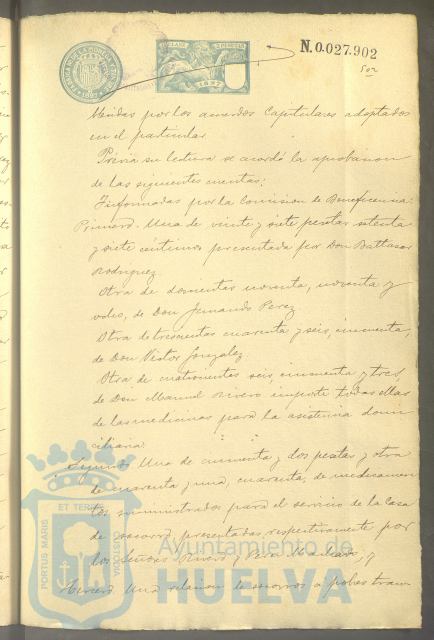 N.0.027.902
CLASE
1897
por los acuerdos Capitulares adoptados
en el particular
Previa su lectura se acordó la aprobacion
de las siguientes cuentas:
Informadas por la Comision de Beneficencia:
Primero. Una de veinte y siete pesetas setenta
y siete centimos presentada por Don Baltasar
Rodriguez.
Otra de doscientas noventa, noventa y
de Don Fernando Perez
Otra de trescientas cuarenta y seis, cincuenta,
de Don Victor Gonzalez
Otra de cuatrocientas seis, cincuenta y tres,
de Don Manuel Rivero importe todas ellas
de las medicinas para la asistencia domi
ciliaria.
Segundo Una de cincuenta y dos pesetas y otra
de cuarenta y una, cuarenta, de medicamen
tos suministrados para el servicio de la Casa
de socorro, presentadas respectivamente por
los Señores Rivero y
Tercero Una relacion de socorros a pobres tran
Ayuntamiento de
HUELVA
PORTUS MARIS
ET TERRAE
CUSTODIA